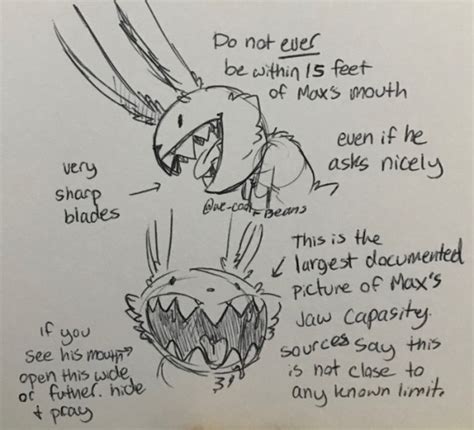 Do not ever
be within 15 feet
of Max's mouth
even if he
asks nicely
very
sharp
blades
This is the
largest documented
picture of Max's
Jaw Capasity.
sources say this
is not close to
any known limit.
if you
see his mouth
open this wide
or futher. hide
+ pray